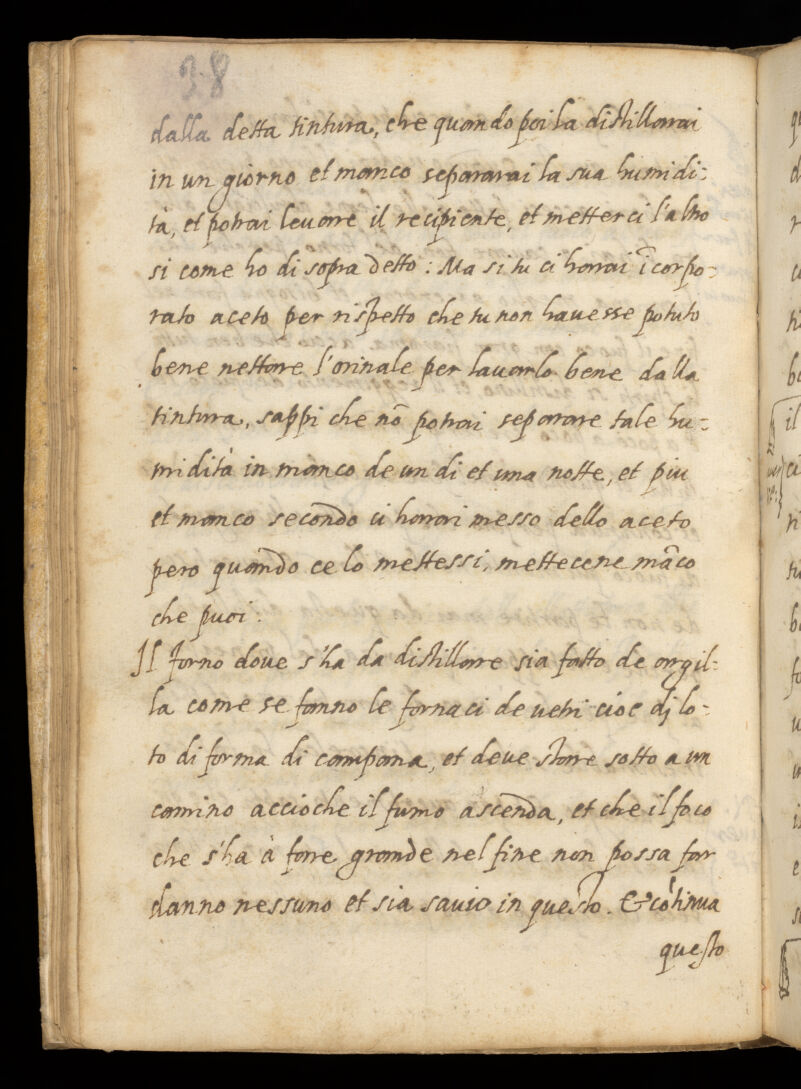 38
dalla detta tintura, che quando poi la distillarai
in un giorno et manco separarai la sua humidi-
tà, et potrai levare il recipiente, et metterci l'altro
si come ho di sopra detto: Ma si tu ci harai ĩcorpo-
rato aceto per rispetto che tu non havesse potuto
bene nettare l'orinale per lavarlo bene dalla
tintura, sappi che nõ potrai separare tale hu-
midità in manco de un di et una notte, et piu
et manco secondo ci harai messo dello aceto
pero quando ce lo mettessi, mettecene mãco
che puoi.
Il forno dove s'ha da distillare sia fatto de argil-
la come se fanno le fornaci de vetri cioe dj lo-
to di forma di campana, et deve stare sotto a un
camino accioche il fumo ascenda, et che il foco
che s'ha à fare grande nel fine non possa far
danno nessuno et sia savio in questo. & cõtinua
questo